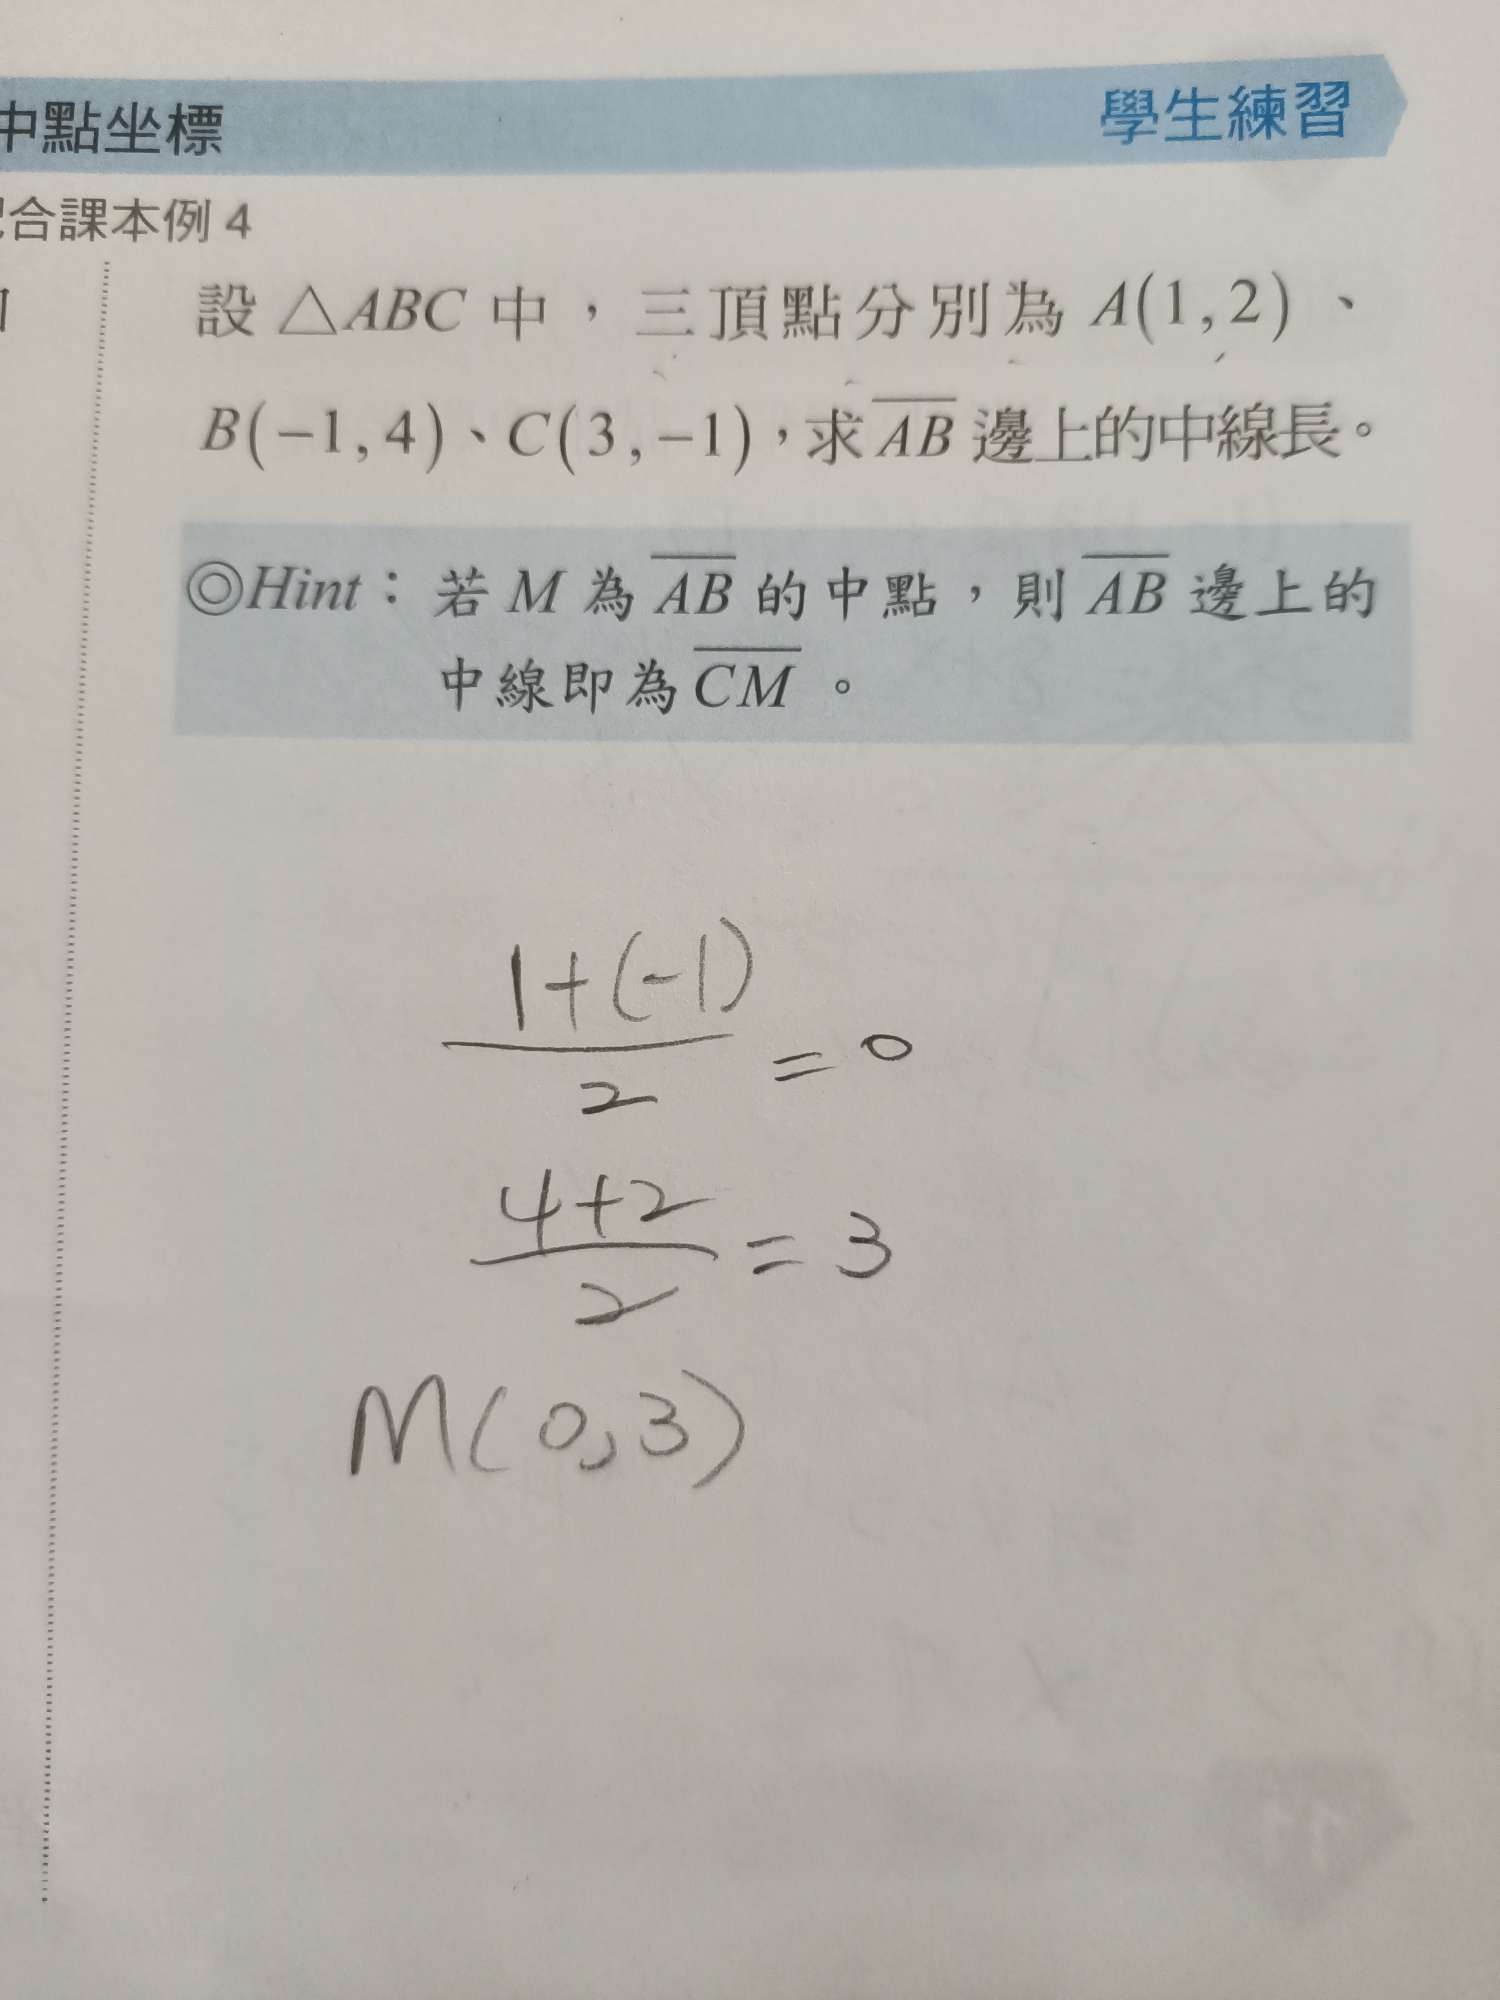 中點坐標
學生練習
合課本例 4
設 △ABC 中，三頂點分別為 A(1,2)、
B(−1,4)、C(3,−1)，求 \overline{AB} 邊上的中線長。
◎Hint：若 M 為 \overline{AB} 的中點，則 \overline{AB} 邊上的
中線即為 \overline{CM} 。
1+(-1)
2
= 0
4+2
2
= 3
M(0,3)